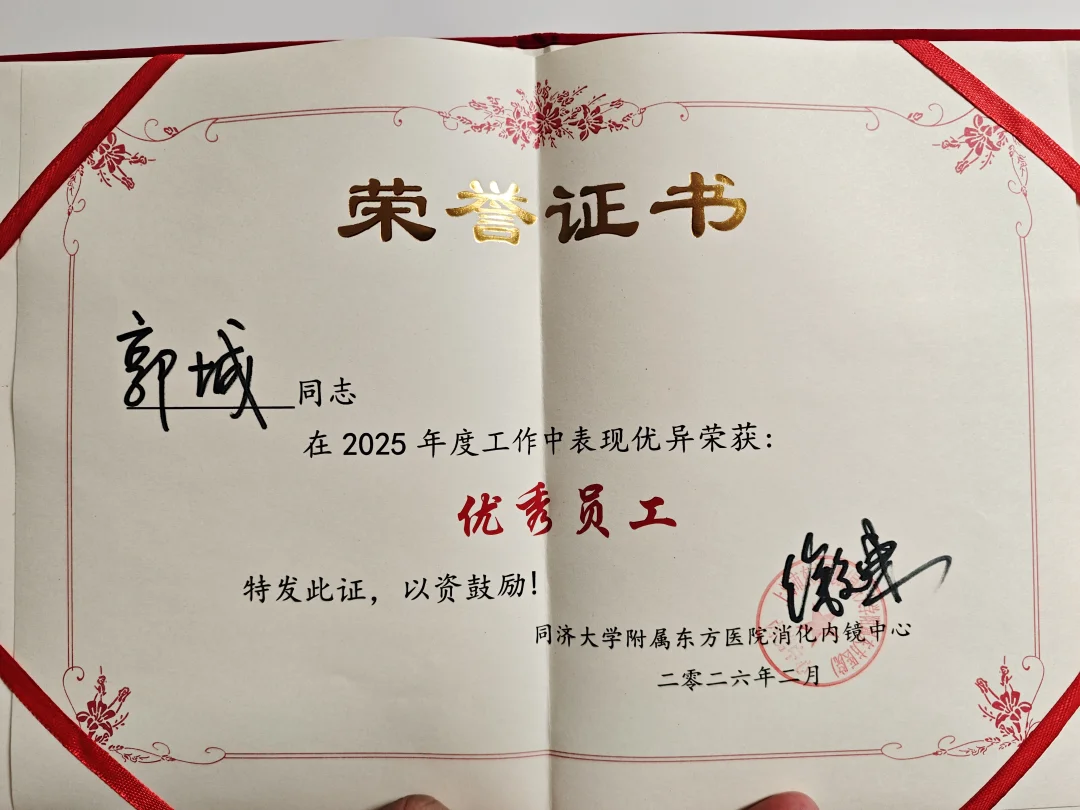 荣誉证书
郭城 同志
在 2025 年度工作中表现优异荣获：
优秀员工
特发此证，以资鼓励！
同济大学附属东方医院消化内镜中心
二零二六年二月